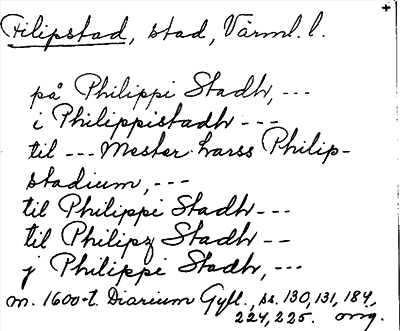 +
Filipstad, stad, Värml. l.
på Philippi Stadh, ---
i Philippistadh ---
til --- Mester harss Philip-
stadium, ---
til Philippi Stadh ---
til Philipz Stadh --
j Philippi Stadh, ---
m. 1600-t. Diarium Gyll., ss. 130, 131, 184,
224, 225. orig.